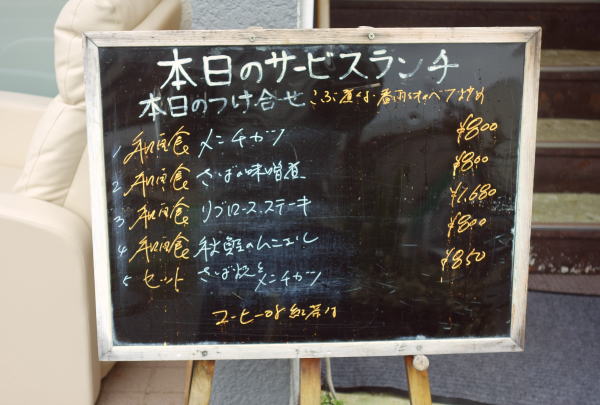 本日のサービスランチ
本日のつけ合せ
1 和風食 メンチカツ ¥800
2 和風食 さばの味噌煮 ¥800
3 和風食 リブロースステーキ ¥1,680
4 和風食 秋鮭のムニエル ¥800
5 セット さば炊とメンチカツ ¥850
コーヒーor紅茶付